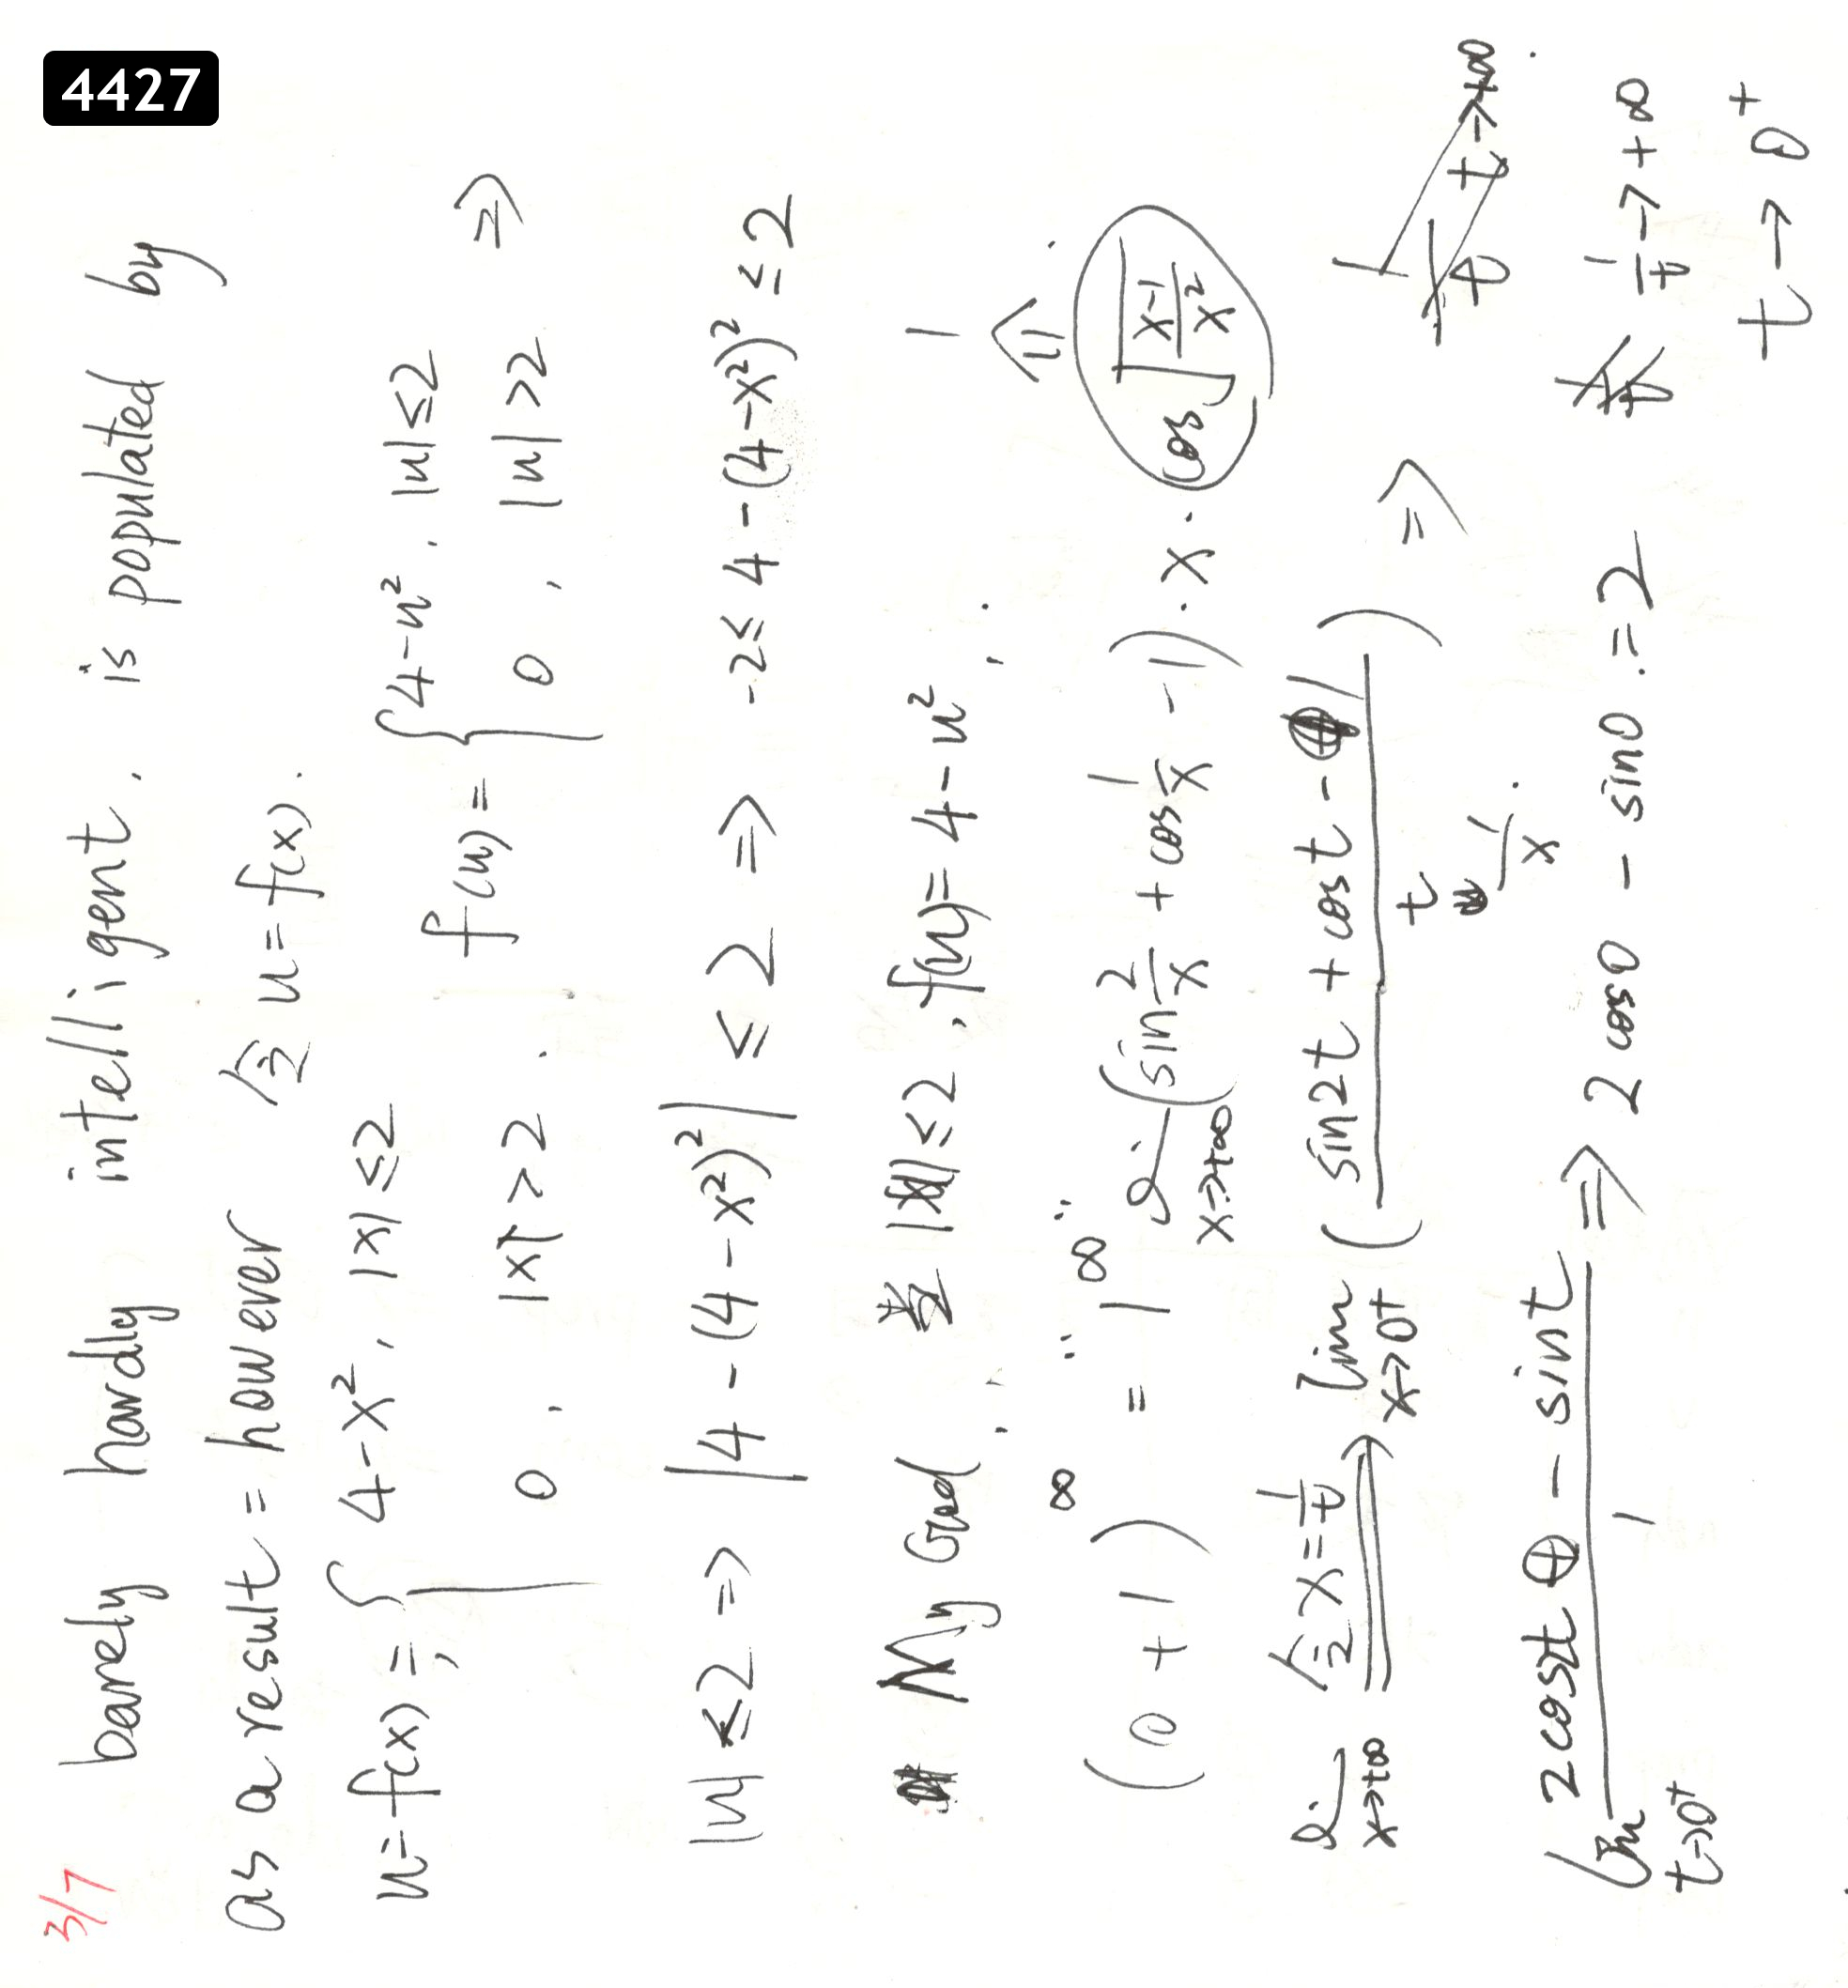 4427
3/7
barely hardly intelligent. is populated by
as a result = however 令 u=f(x).
u=f(x)= { 4-x², |x|≤2 f(u)= { 4-u², |u|≤2 ⇒
0, |x|>2. 0, |u|>2
|u|≤2 ⇒ |4-(4-x²)²| ≤2 ⇒ -2≤4-(4-x²)²≤2
My God, 当|x|≤2, f(u)=4-u², 1
(0+1)^∞ = 1^∞ lim x→+∞ (sin 2/x + cos 1/x - 1)·x· cos √(x-1)/x²
lim x→+∞ 令x=1/t lim x→0⁺ ( (sin2t + cost - 1)/t ) ⇒ 1/t t→+∞.
1/x. 1/t→+∞
lim t→0⁺ (2cost - sint)/1 ⇒ 2cos0 - sin0.=2 t→0⁺